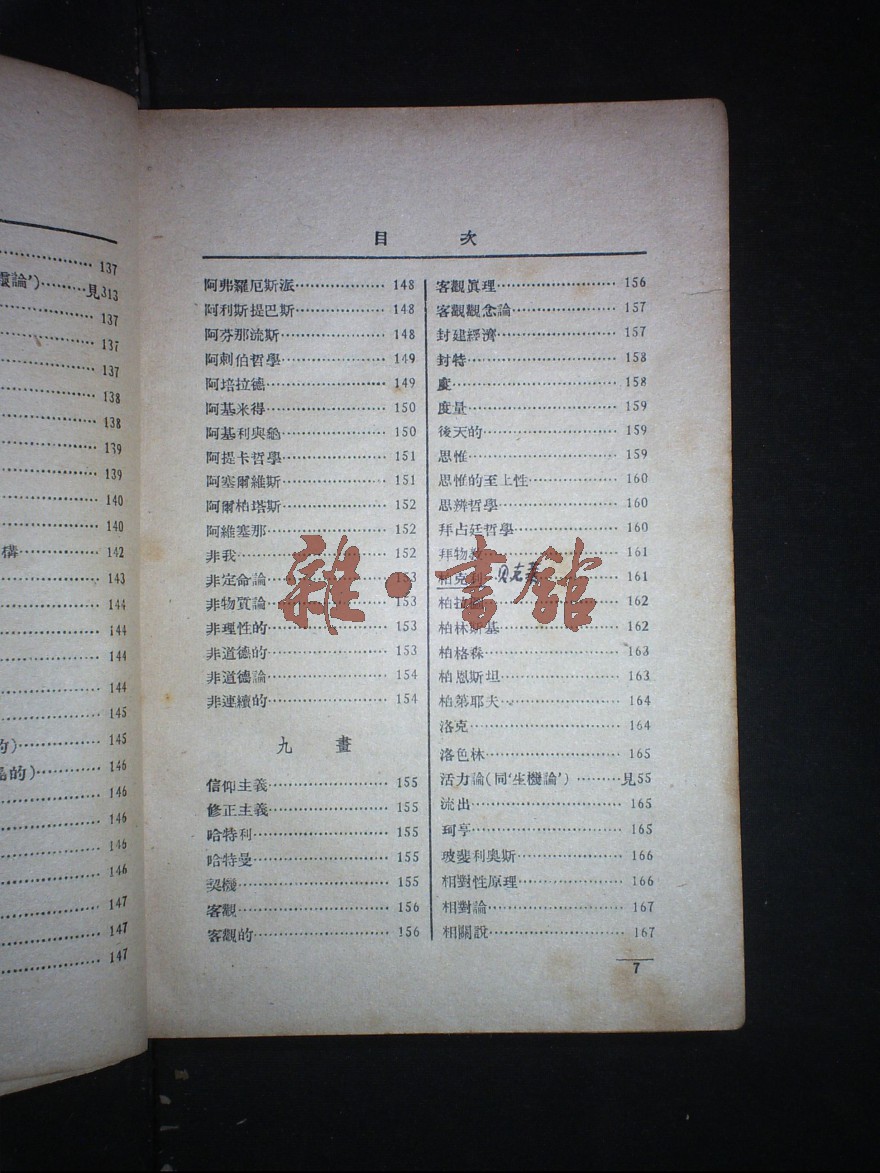 137
靈論’)………見313
137
137
137
138
138
139
139
140
140
構………142
143
144
144
144
144
145
的)………145
的)………146
146
146
146
147
147
147
目 次
阿弗羅厄斯派………148
阿利斯提巴斯………148
阿芬那流斯………148
阿剌伯哲學………149
阿培拉德………149
阿基米得………150
阿基利與龜………150
阿提卡哲學………151
阿塞爾維斯………151
阿爾柏塔斯………152
阿維塞那………152
非我………152
非定命論………153
非物質論………153
非理性的………153
非道德的………153
非道德論………154
非連續的………154
九 畫
信仰主義………155
修正主義………155
哈特利………155
哈特曼………155
契機………155
客觀………156
客觀的………156
客觀眞理………156
客觀觀念論………157
封建經濟………157
封特………158
虔………158
度量………159
後天的………159
思惟………159
思惟的至上性………160
思辨哲學………160
拜占廷哲學………160
拜物教………161
柏克利………161
貝克萊
柏拉圖………162
柏林斯基………162
柏格森………163
柏恩斯坦………163
柏第耶夫………164
洛克………164
洛色林………165
活力論(同‘生機論’)………見55
流出………165
珂亨………165
玻斐利奥斯………166
相對性原理………166
相對論………167
相關說………167
7
雜·書館